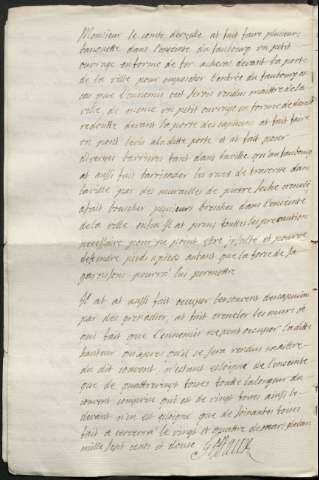 Monsieur le comte de at fait faire plusieurs
banquette dans l'enceinte du faubourg un petit
ouvrage en forme de fer devant la porte
de la ville pour empescher l'entrée du faubourg en
cas que l'ennemis s'en seroi rendus maittre de la
ville, de mesme un petit ouvrage en forme de demi
redoutte devant la porte des capucins at fait faire
un pont levi a laditte porte et at fait poser
diverses barrieres tant dans la ville qu'au faubourg
at aussi fait barricader les rues de traverse dans
la ville par des murailles de pierre seche
at fait boucher plusieurs breches dans l'enceinte
de la ville enfin il at prins toutes les precaution
necessaire pour ne point estre insulté et pouvoir
defendre pied a pied autant que la force de sa
garnison pourra lui permettre
Il at at aussi fait occuper le couvent des capucins
par des grenadier at fait creneler les murs
qui fait que l'ennemis ne peut occuper laditte
hauteur qu'apres qu'il se sera rendus maittre
du dit couvent, n'estant esloigné de l'enceinte
que de quattre vingt toises toutte la longeur du
couvent comprise qui est de vingt toises ainsi le
devant n'en est esloigné que de soixante toises
fait a le vingt et quattre de mars de l'an
mille sept cents et douse